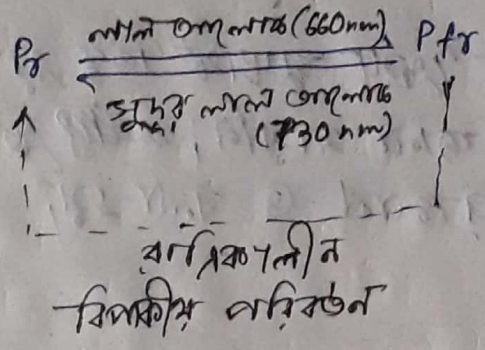 লাল আলোক (660nm)
Pr Pfr
সুদূর লাল আলোক
(730nm)
রাত্রিকালীন
বিপাকীয় পরিবর্তন